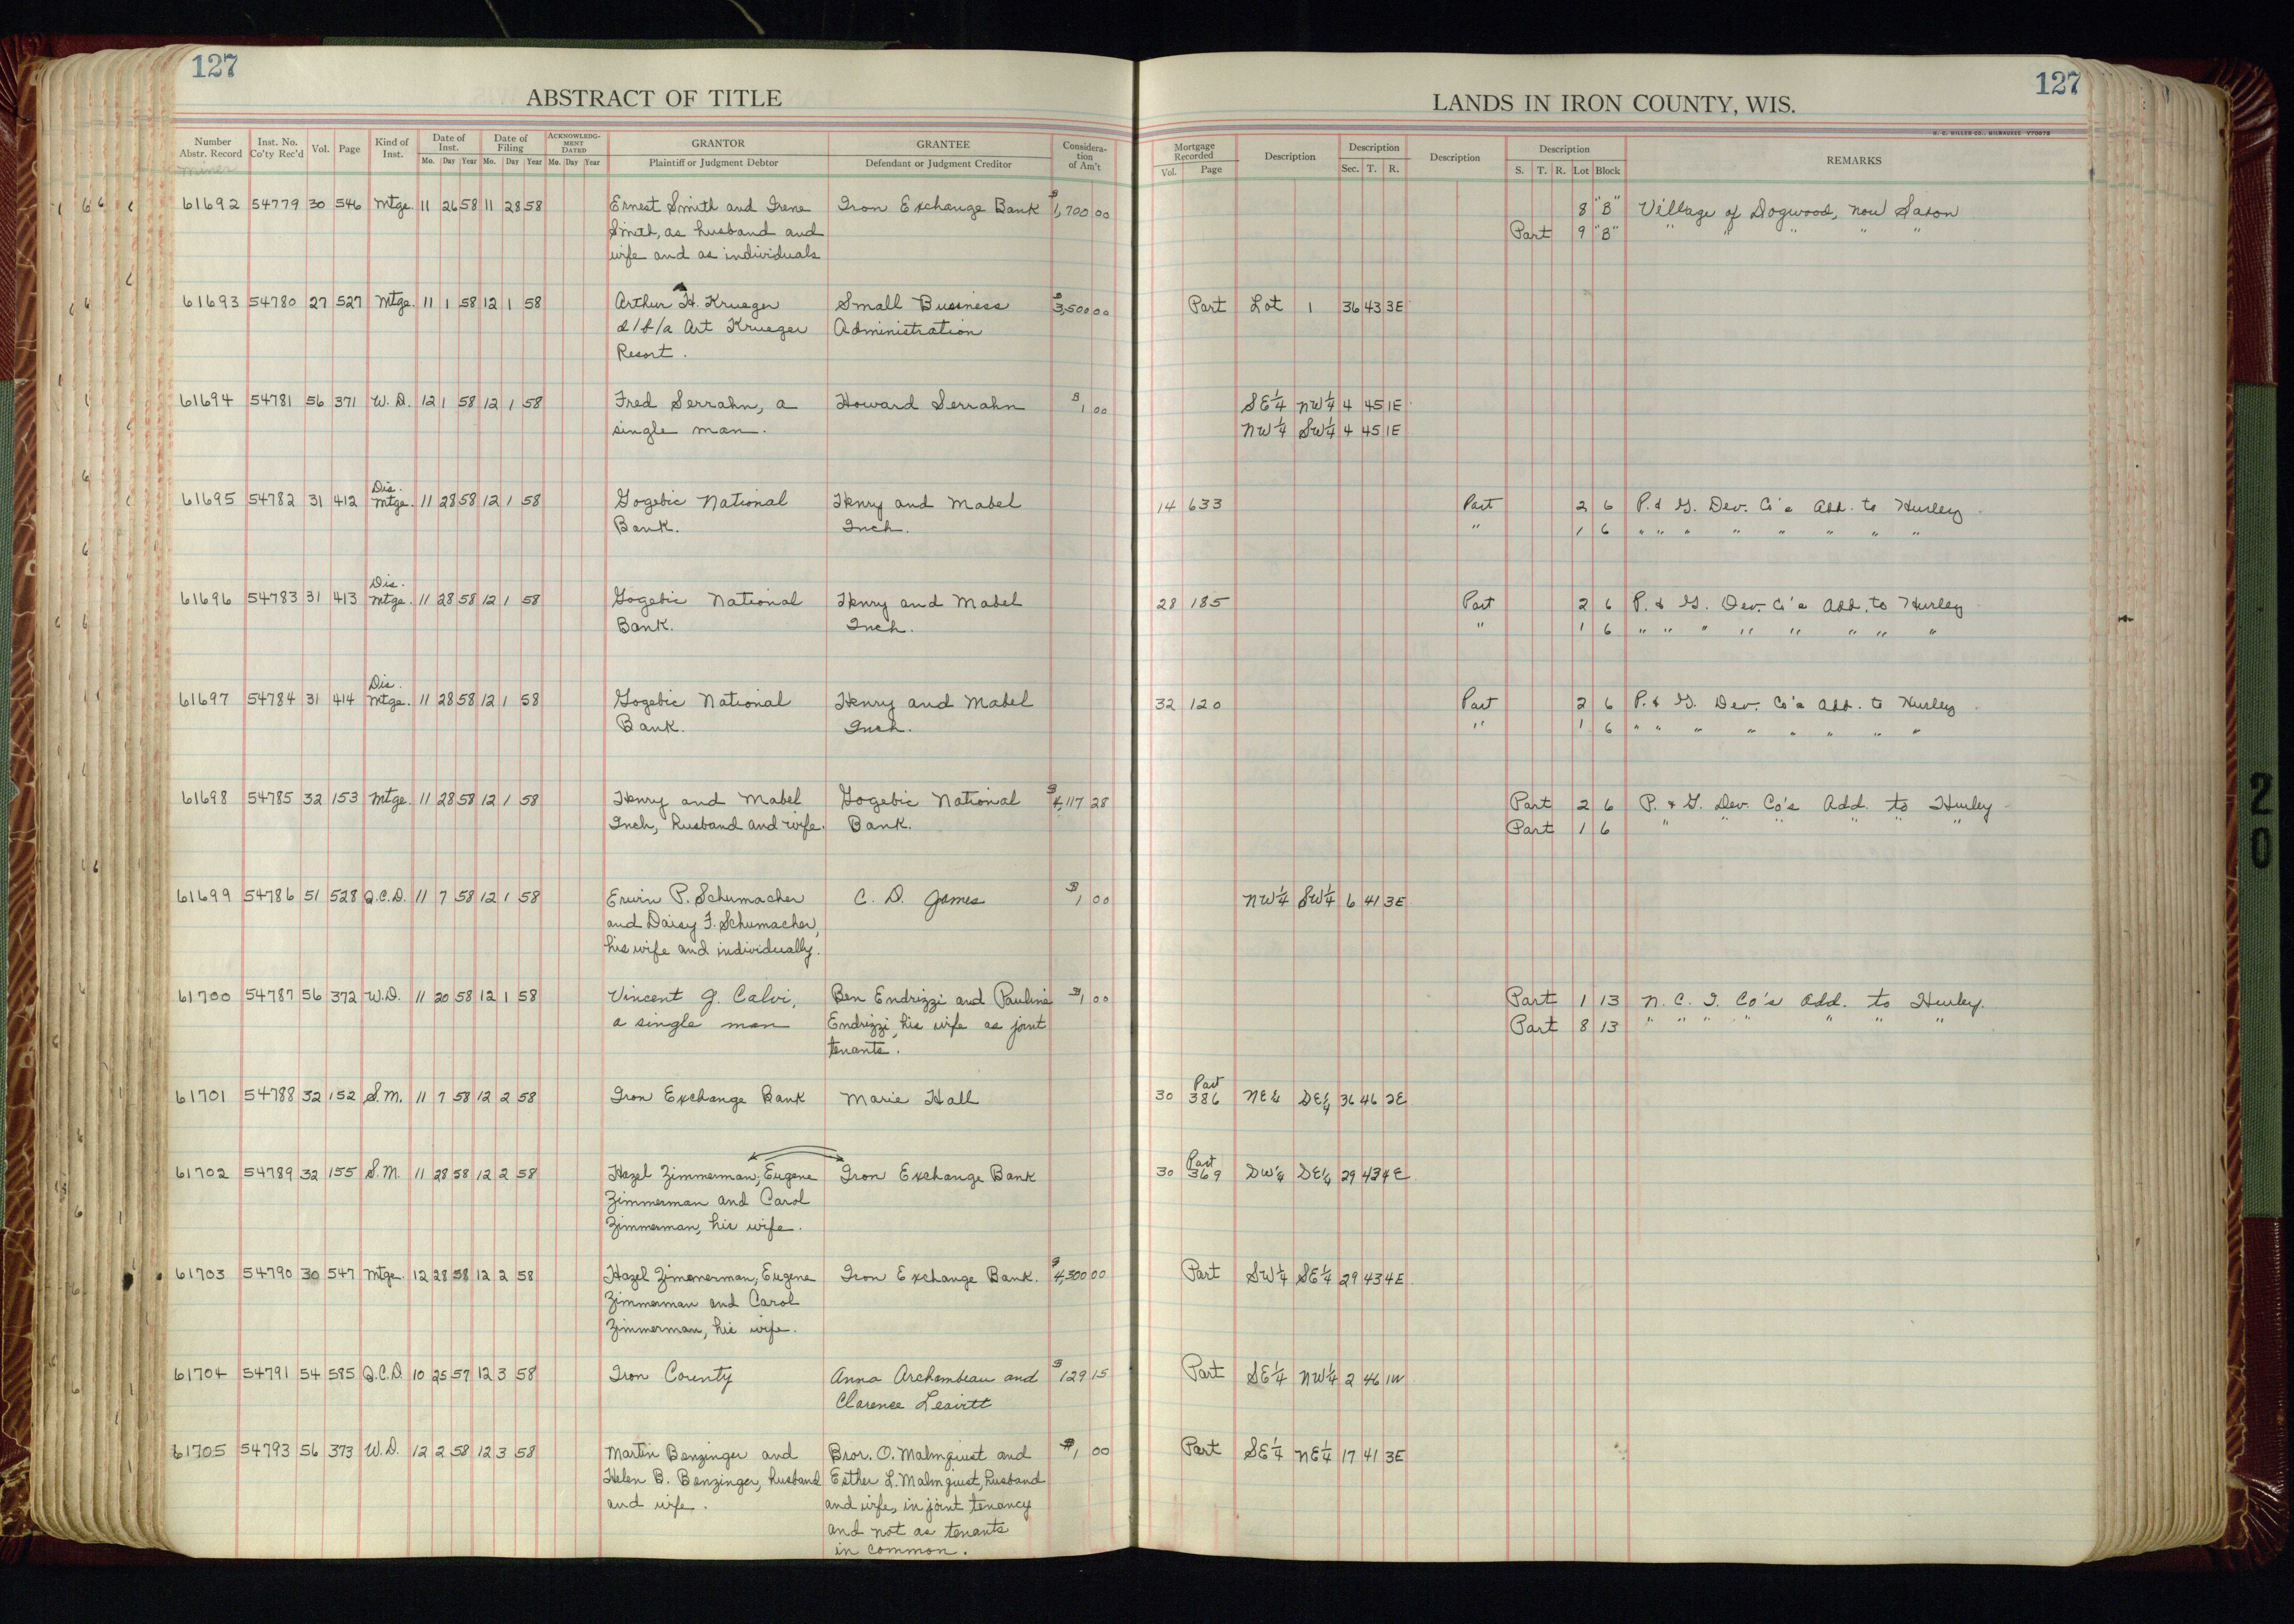 127
ABSTRACT OF TITLE
Number Abstr. Record
Inst. No. Co'ty Rec'd
Vol.
Page
Kind of Inst.
Date of Inst.
Mo. Day Year
Date of Filing
Mo. Day Year
ACKNOWLEDG-MENT DATED
Mo. Day Year
GRANTOR
Plaintiff or Judgment Debtor
GRANTEE
Defendant or Judgment Creditor
Considera-tion of Am't
127
LANDS IN IRON COUNTY, WIS.
H. C. MILLER CO., MILWAUKEE V70078
Mortgage Recorded
Vol. Page
Description
Description
Sec. T. R.
Description
Description
S. T. R. Lot Block
REMARKS
61692 54779 30 546 Mtge. 11 26 58 11 28 58 Ernest Smith and Irene Iron Exchange Bank $1,700 00 8 "B" Village of Dogwood, now Saxon
Smith, as husband and Part 9 "B" " " " " "
wife and as individuals
61693 54780 27 527 Mtge. 11 1 58 12 1 58 Arthur H. Krueger Small Business $3,500 00 Part Lot 1 36 43 3E
d/b/a Art Krueger Administration
Resort.
61694 54781 56 371 W. D. 12 1 58 12 1 58 Fred Serrahn, a Howard Serrahn $1 00 SE¼ NW¼ 4 45 1E
single man. NW¼ SW¼ 4 45 1E
Dis.
61695 54782 31 412 Mtge. 11 28 58 12 1 58 Gogebic National Henry and Mabel 14 633 Part 2 6 P. & G. Dev. Co's Add. to Hurley
Bank. Inch. " 1 6 " " " " " " " "
Dis.
61696 54783 31 413 Mtge. 11 28 58 12 1 58 Gogebic National Henry and Mabel 28 185 Part 2 6 P. & G. Dev. Co's Add. to Hurley
Bank. Inch. " 1 6 " " " " " " " "
Dis.
61697 54784 31 414 Mtge. 11 28 58 12 1 58 Gogebic National Henry and Mabel 32 120 Part 2 6 P. & G. Dev. Co's Add. to Hurley
Bank. Inch. " 1 6 " " " " " " " "
61698 54785 32 153 Mtge. 11 28 58 12 1 58 Henry and Mabel Gogebic National $4,117 28 Part 2 6 P. & G. Dev. Co's Add. to Hurley
Inch, husband and wife. Bank. Part 1 6 " " " " " "
61699 54786 51 528 Q.C.D. 11 7 58 12 1 58 Erwin P. Schumacher C. D. James $1 00 NW¼ SW¼ 6 41 3E
and Daisy F. Schumacher,
his wife and individually.
61700 54787 56 372 W.D. 11 20 58 12 1 58 Vincent J. Calvi, Ben Endrizzi and Pauline $1 00 Part 1 13 N. C. I. Co's Add. to Hurley.
a single man Endrizzi, his wife as joint Part 8 13 " " " " " " "
tenants.
Part
61701 54788 32 152 S.M. 11 7 58 12 2 58 Iron Exchange Bank Marie Hall 30 386 NE¼ SE¼ 36 46 2E
Part
61702 54789 32 155 S.M. 11 28 58 12 2 58 Hazel Zimmerman, Eugene Iron Exchange Bank 30 369 SW¼ SE¼ 29 43 4E
Zimmerman and Carol
Zimmerman, his wife.
61703 54790 30 547 Mtge. 12 28 58 12 2 58 Hazel Zimmerman, Eugene Iron Exchange Bank. $4,300 00 Part SW¼ SE¼ 29 43 4E
Zimmerman and Carol
Zimmerman, his wife.
61704 54791 54 585 Q.C.D. 10 25 57 12 3 58 Iron County Anna Archambeau and $129 15 Part SE¼ NW¼ 2 46 1W
Clarence Leavitt
61705 54793 56 373 W.D. 12 2 58 12 3 58 Martin Benzinger and Bror. O. Malmquist and $1 00 Part SE¼ NE¼ 17 41 3E
Helen B. Benzinger, husband Esther L. Malmquist, husband
and wife. and wife, in joint tenancy
and not as tenants
in common.
20